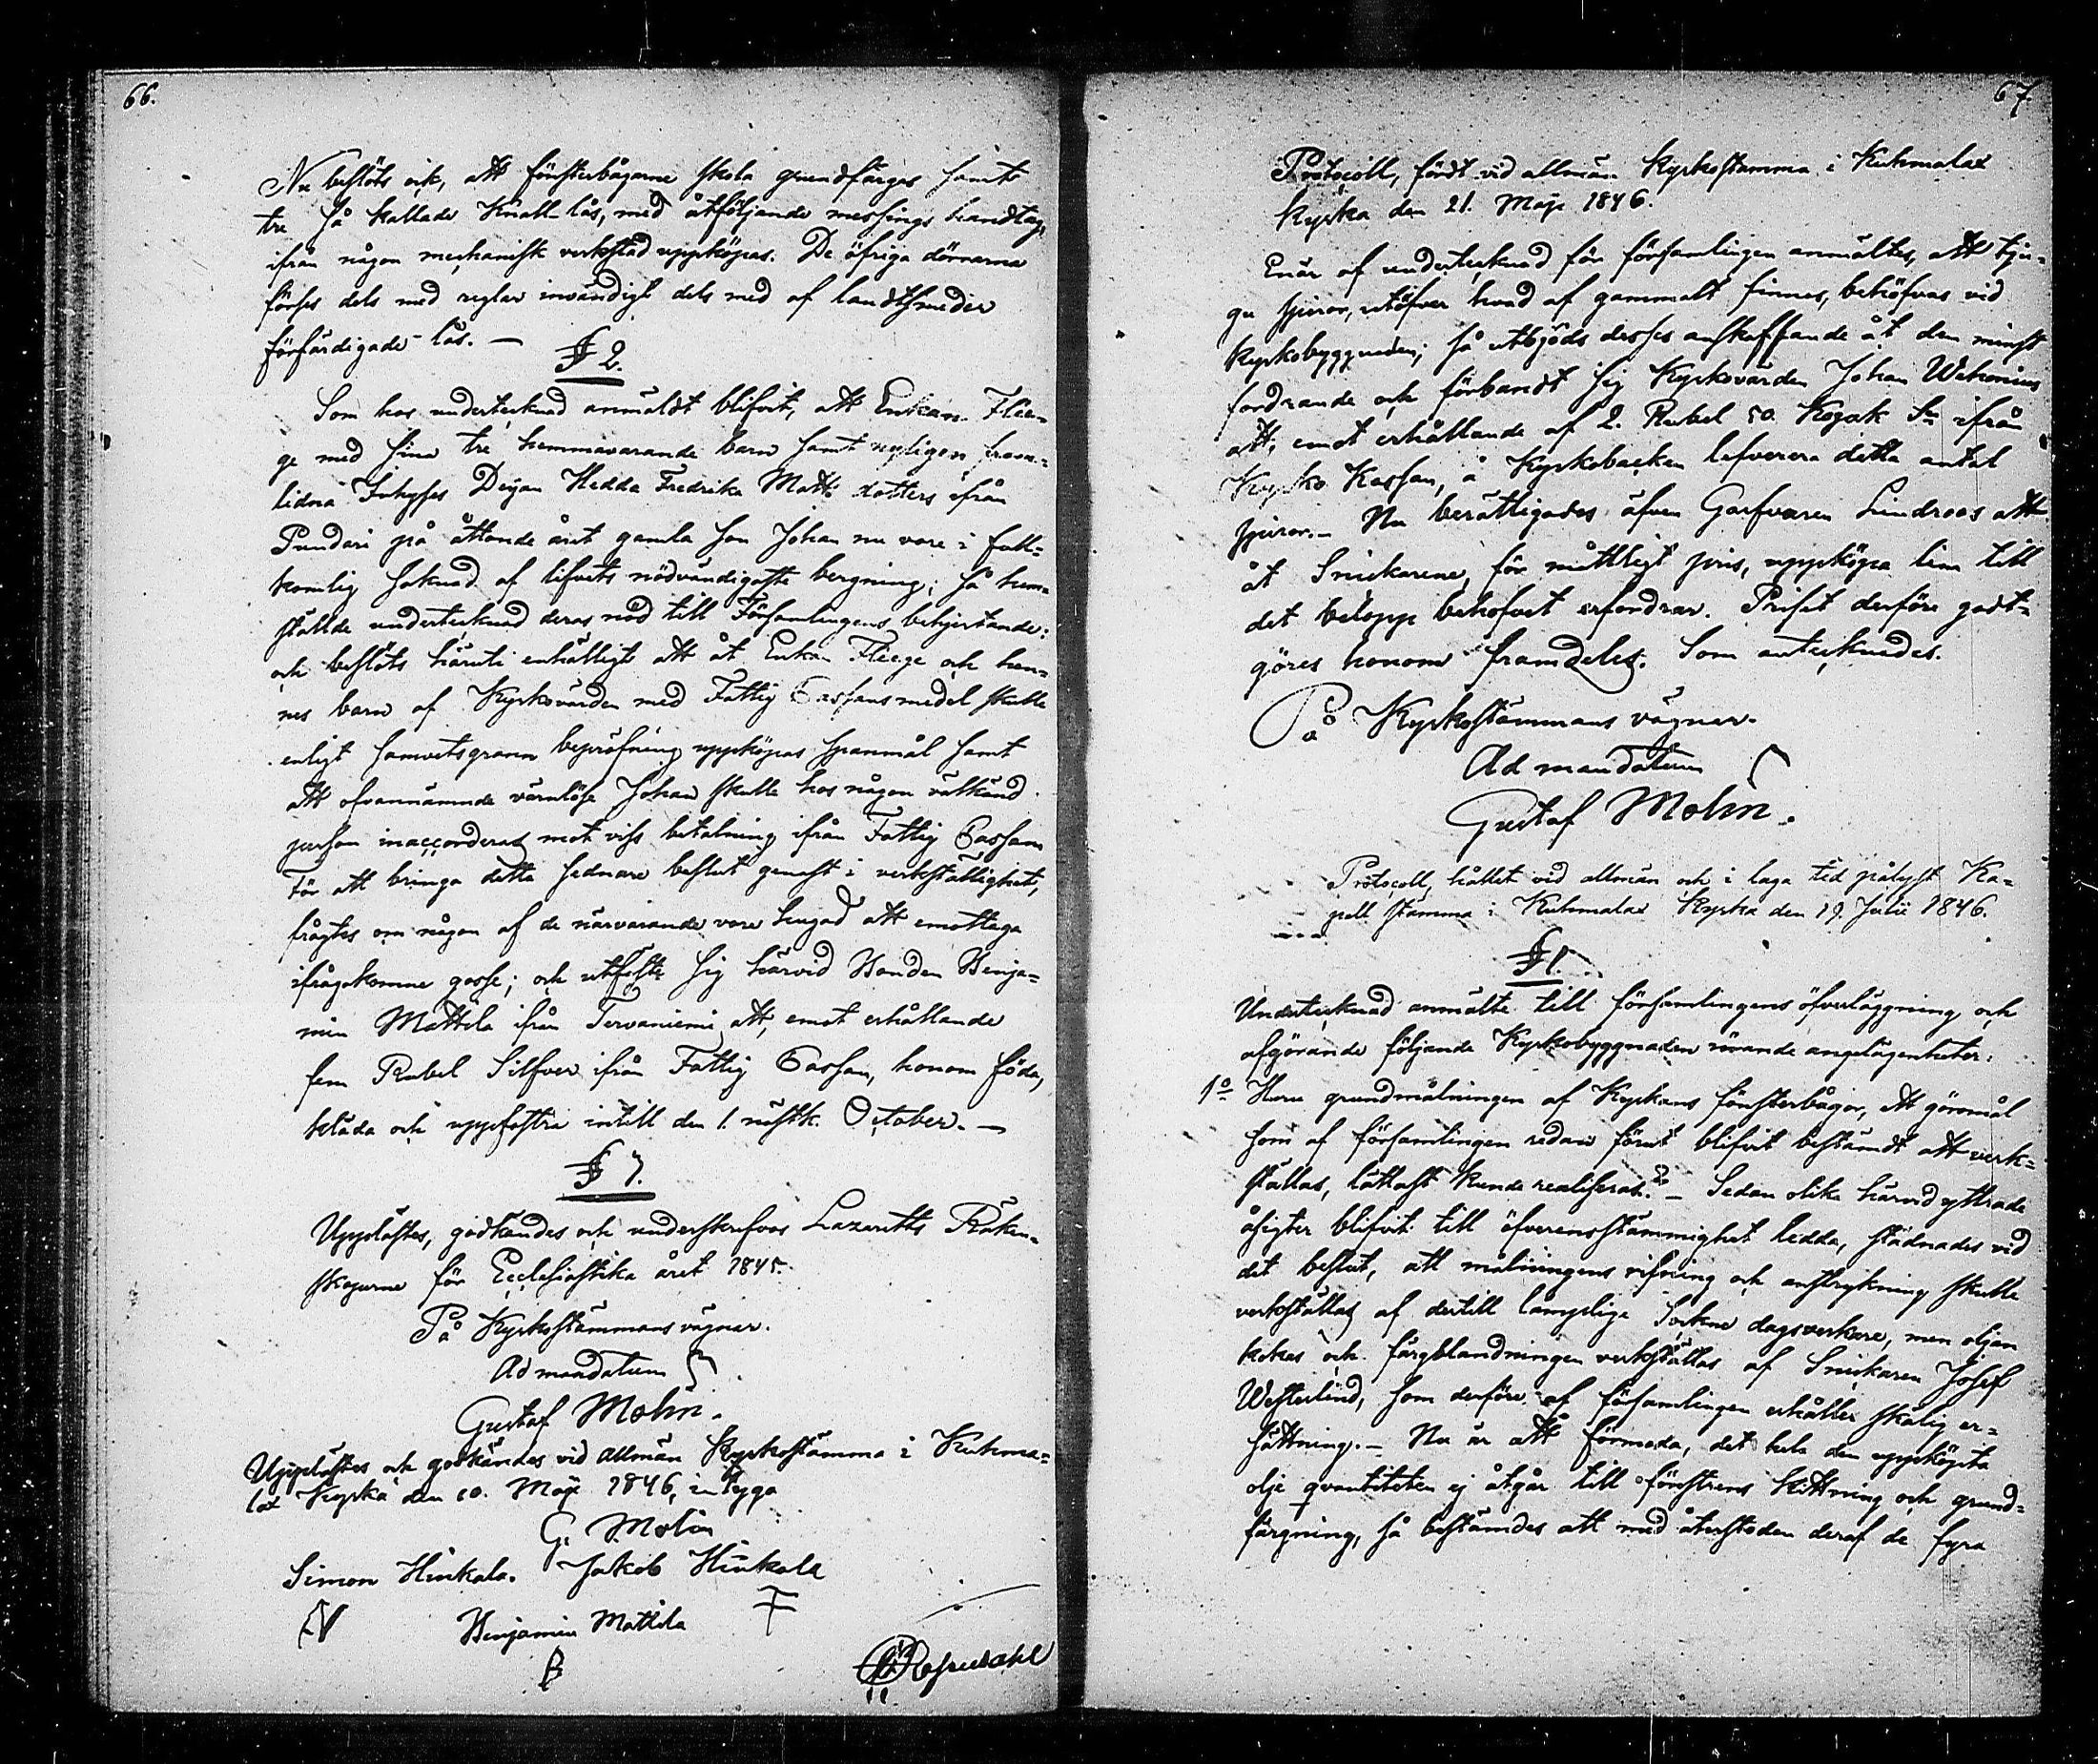 66.
Nu beslöts ock, att fönsterbågarne skola grundfärgas samt
tre så kallade Knall-lås, med åtföljande messings handtag,
ifrån någon mechanisk verkstad uppköpas. De öfriga dörrarna
förses dels med reglar invändigt dels med af landtsmeder
förfärdigade lås. —
§ 2.
Som hos undertecknad anmäldt blifvit, att Enkan Flie-
ge med sina tre hemmavarande barn samt nyligen fram-
lidna Inhyses Deijan Hedda Fredrika Matts dotters ifrån
Pundari på åttonde året gamla son Johan nu vore i full-
komlig saknad af lifvets nödvändigaste bergning; så hem-
ställde undertecknad deras nöd till Församlingens behjertande:
och beslöts häruti enhälligt att åt Enkan Fliege och hen-
nes barn af Kyrkovärden med Fattig Cassans medel skulle
enligt samvetsgrann bepröfning uppköpas spanmål samt
att ofvannämnde värnlöse Johan skulle hos någon välkänd
person inaccorderas mot viss betalning ifrån Fattig Cassan
För att bringa detta sednare beslut genast i verkställighet,
frågtes om någon af de närvarande vore hugad att emottaga
ifrågakomne gosse; och utfäste sig härvid Bonden Benja-
min Mattila ifrån Tervaniemi att, emot erhållande
fem Rubel Silfver ifrån Fattig Cassan, honom föda,
kläda och uppfostra intill den 1. nästk. October. —
§ 3.
Upplästes, godkändes och underskrefvos Lazaretts Räken-
skaperne för Ecclesiastika året 1845.
På Kyrkostämmans vägnar.
Ad mandatum
Gustaf Molin.
Upplästes och godkändes vid allmän Kyrkostämma i Kuhma-
lax Kyrka den 10. Maji 1846, intyga
G. Molin
Simon Hinkala. Jakob Hinkala
Benjamin Mattila
B
67
Protocoll, fördt vid allmän Kyrkostämma i Kuhmalax
kyrka den 21. Maji 1846.
Enär af undertecknad för församlingen anmältes, att tju-
gu spiror, utöfver hvad af gammalt finnes, behöfvas vid
kyrkobyggnaden; så utbjöds desses anskaffande åt den minst
fordrande och förbandt sig Kyrkovärden Johan Wahonius
att, emot erhållande af 2. Rubel 50. Kopek Sr ifrån
Kyrko Kassan, å Kyrkobacken lefverera detta antal
spiror. — Nu berättigades äfven Garfvaren Lindroos att
åt Snickarene, för måttligt pris, uppköpa lim till
det belopp behofvet erfordrar. Priset derföre godt-
göres honom framdeles. Som antecknades.
På Kyrkostämmans vägnar.
Ad mandatum
Gustaf Molin.
Protocoll, hållet vid allmän och i laga tid pålyst Ka-
pell stämma i Kuhmalax Kyrka den 19. Julii 1846.
§ 1.
Undertecknad anmälte till församlingens öfverläggning och
afgörande följande Kyrkobyggnaden rörande angelägenheter:
1o Huru grundmålningen af Kyrkans fönsterbågor, ett göromål
som af församlingen redan förut blifvit bestämdt att verk-
ställas, lättast kunde realiseras? — Sedan olika härvid yttrade
åsigter blifvit till öfverensstämmighet ledda, stadnades vid
det beslut, att målningens rifning och anstrykning skulle
verkställas af dertill lämpelige Sockne dagsverkare, men oljan
kokas och färgblandningen verkställas af Snickaren Josef
Westerlund, som derföre af församlingen erhåller skälig er-
sättning. — Nu är att förmoda, det hela den uppköpta
olje qvantiteten ej åtgår till fönstrens kittning och grund-
färgning, så bestämdes att med återstoden deraf de fyra